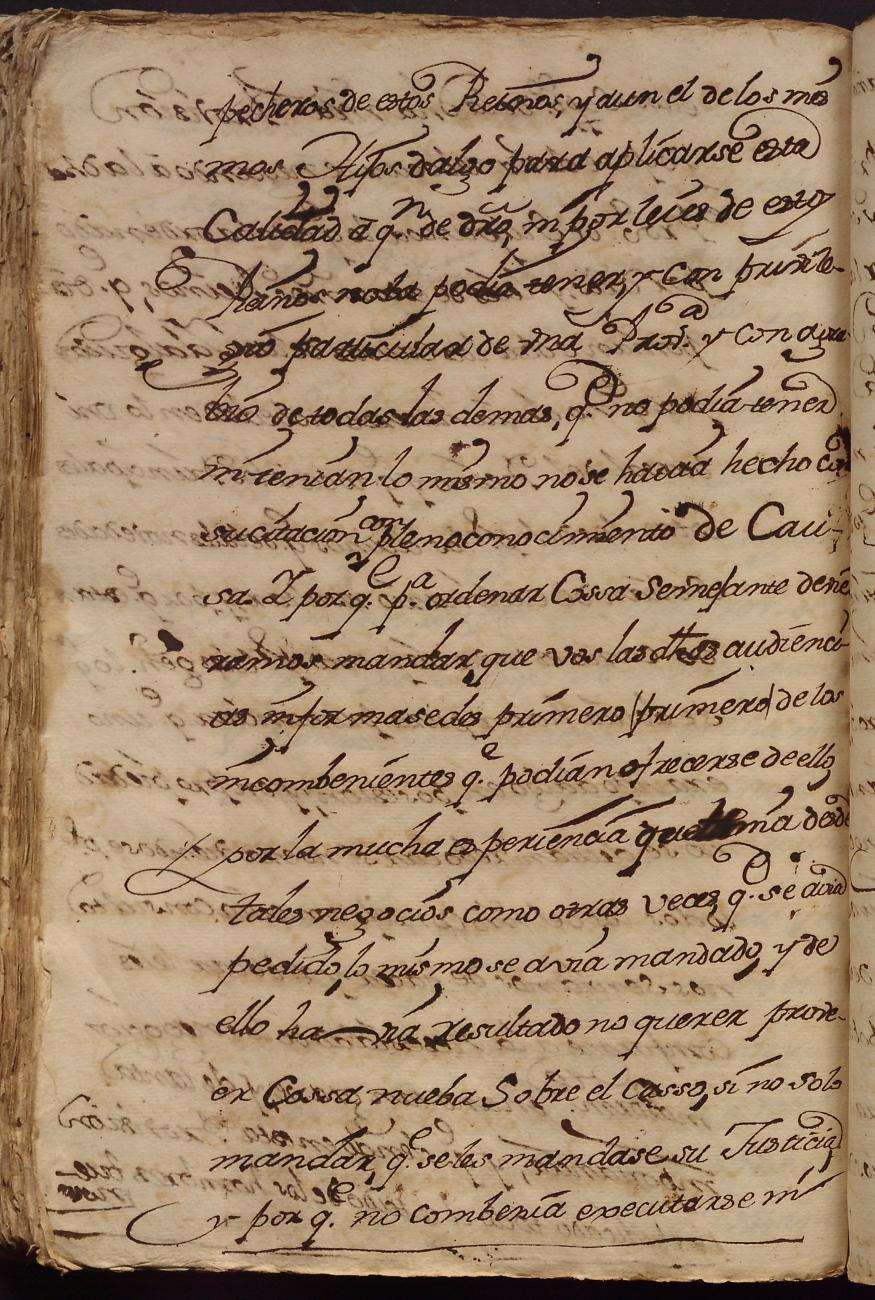 pecheros de estos Reinos, y aun el de los mes
mos Hijos dalgo para aplicarse esta
Calidad a q.n de dro, ni por leies de estos
Reinos no la podia tener, y con privile-
gio particular de una Prov.a y con agra-
bio de todas las demas, q.e no podia tener
ni tenian lo mismo no se havia hecho con
su citacion con pleno conocimiento de Cau-
sa. Y por q.e p.a ordenar Cossa Semejante devie
ramos mandar, que vos las dhas audienci-
as informasedes primero (primero) de los
incombenientes q.e podian ofrecerse de ello
por la mucha esperiencia que desde
tales negocios como otras veces, q.e se avia
pedido, lo mismo se avia mandado, y de
ello havia resultado no querer prove-
er Cossa nueba Sobre el Casso, si no solo
mandar, q.e se les mandase su Justicia,
y por q.e no combenia executarse ni